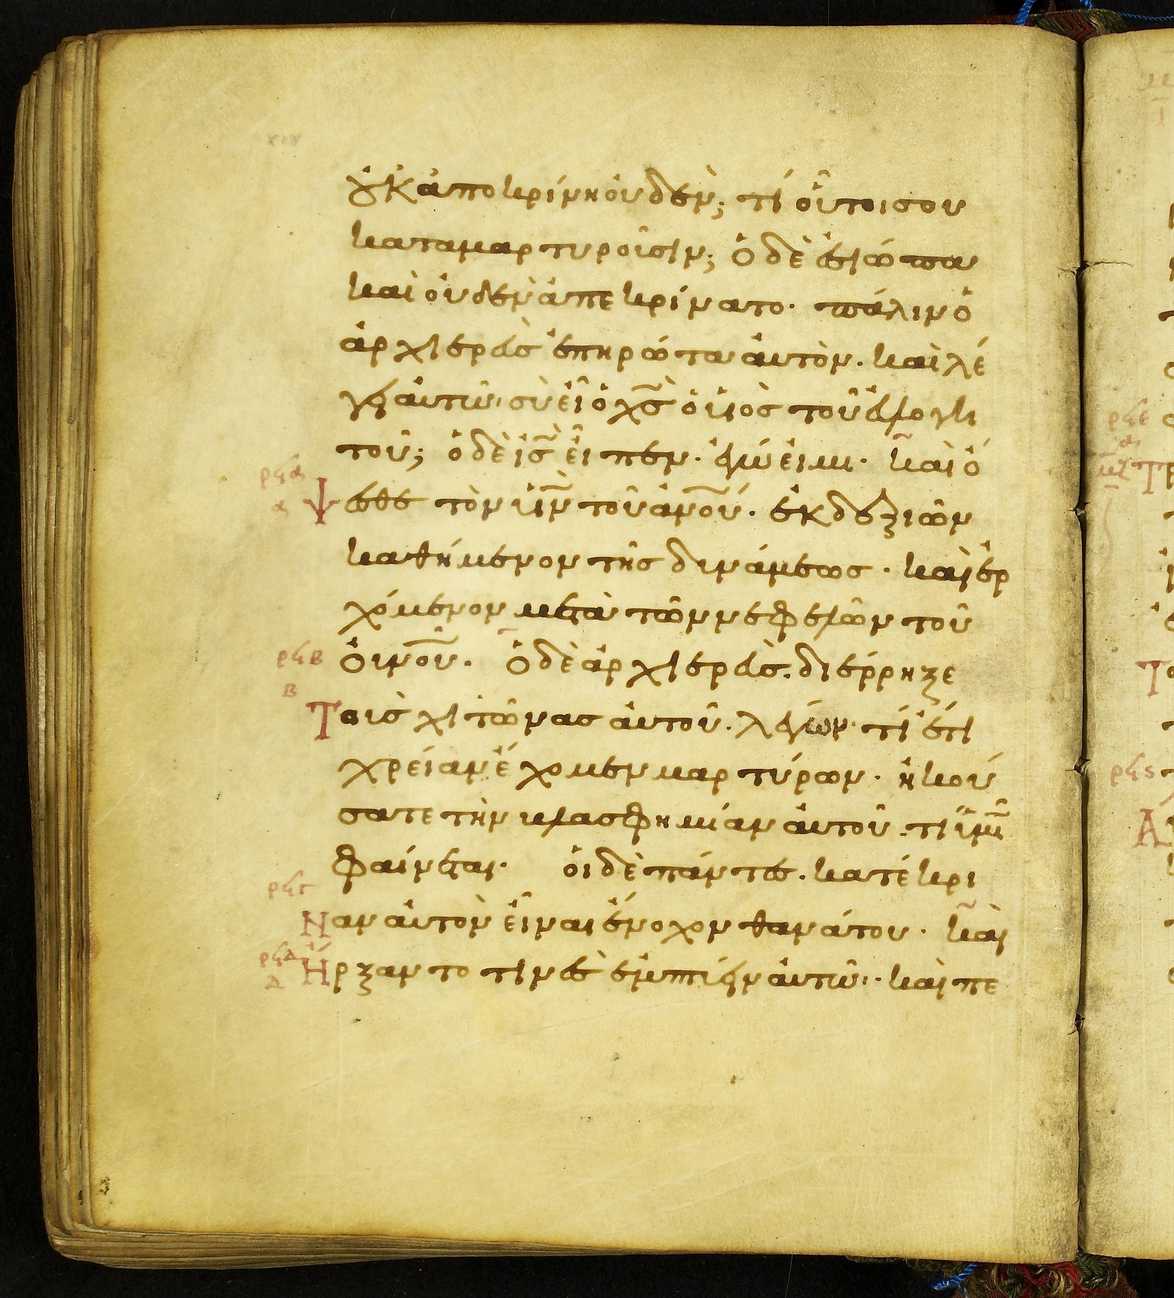 οὐκ ἀποκρίνῃ οὐδέν; τί οὗτοι σου
καταμαρτυροῦσιν; ὁ δὲ ἐσιώπα
καὶ οὐδὲν ἀπεκρίνατο· πάλιν ὁ
ἀρχιερεὺς ἐπηρώτα αὐτὸν· καὶ λέ
γει αὐτῶ· σὺ εἶ ὁ χς ὁ υἱὸς τοῦ εὐλογη
τοῦ; ὁ δὲ ις εἶπεν· ἐγώ εἰμι· καὶ ὄ
ρϟα
α
ψεσθε τὸν υἱν τοῦ ανου· ἐκ δεξιῶν
καθήμενον τῆς δυνάμεως· καὶ ἐρ
χόμενον μετὰ τῶν νεφελῶν τοῦ
ρϟβ
οὐνου· ὁ δὲ ἀρχιερεὺς· διέρρηξε
β
Τοὺς χιτῶνας αὐτοῦ· λέγων· τί ἔτι
χρείαν ἔχομεν μαρτύρων· ἠκού
σατε τὴν βλασφημίαν αὐτοῦ· τί ὑμῖν
φαίνεται· οἱ δὲ πάντες· κατέκρι
ρϟγ
Ναν αὐτὸν εἶναι ἔνοχον θανάτου· καὶ
ρϟδ
δ
Ἤρξαντό τινες ἐμπτύειν αὐτῶ· καὶ πε